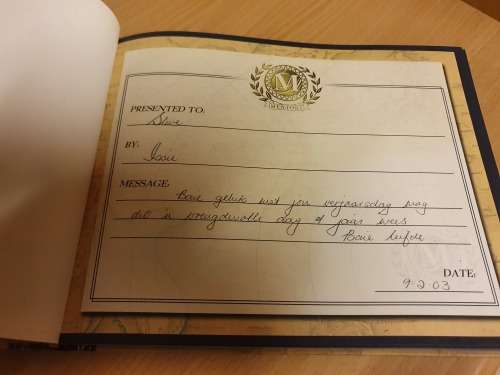 M
MENTORS
PRESENTED TO:
Steve
BY:
Issie
MESSAGE:
Baie geluk met jou verjaarsdag mag
dit 'n vreugdevolle dag & jaar wees
Baie liefde
DATE:
9-2-03